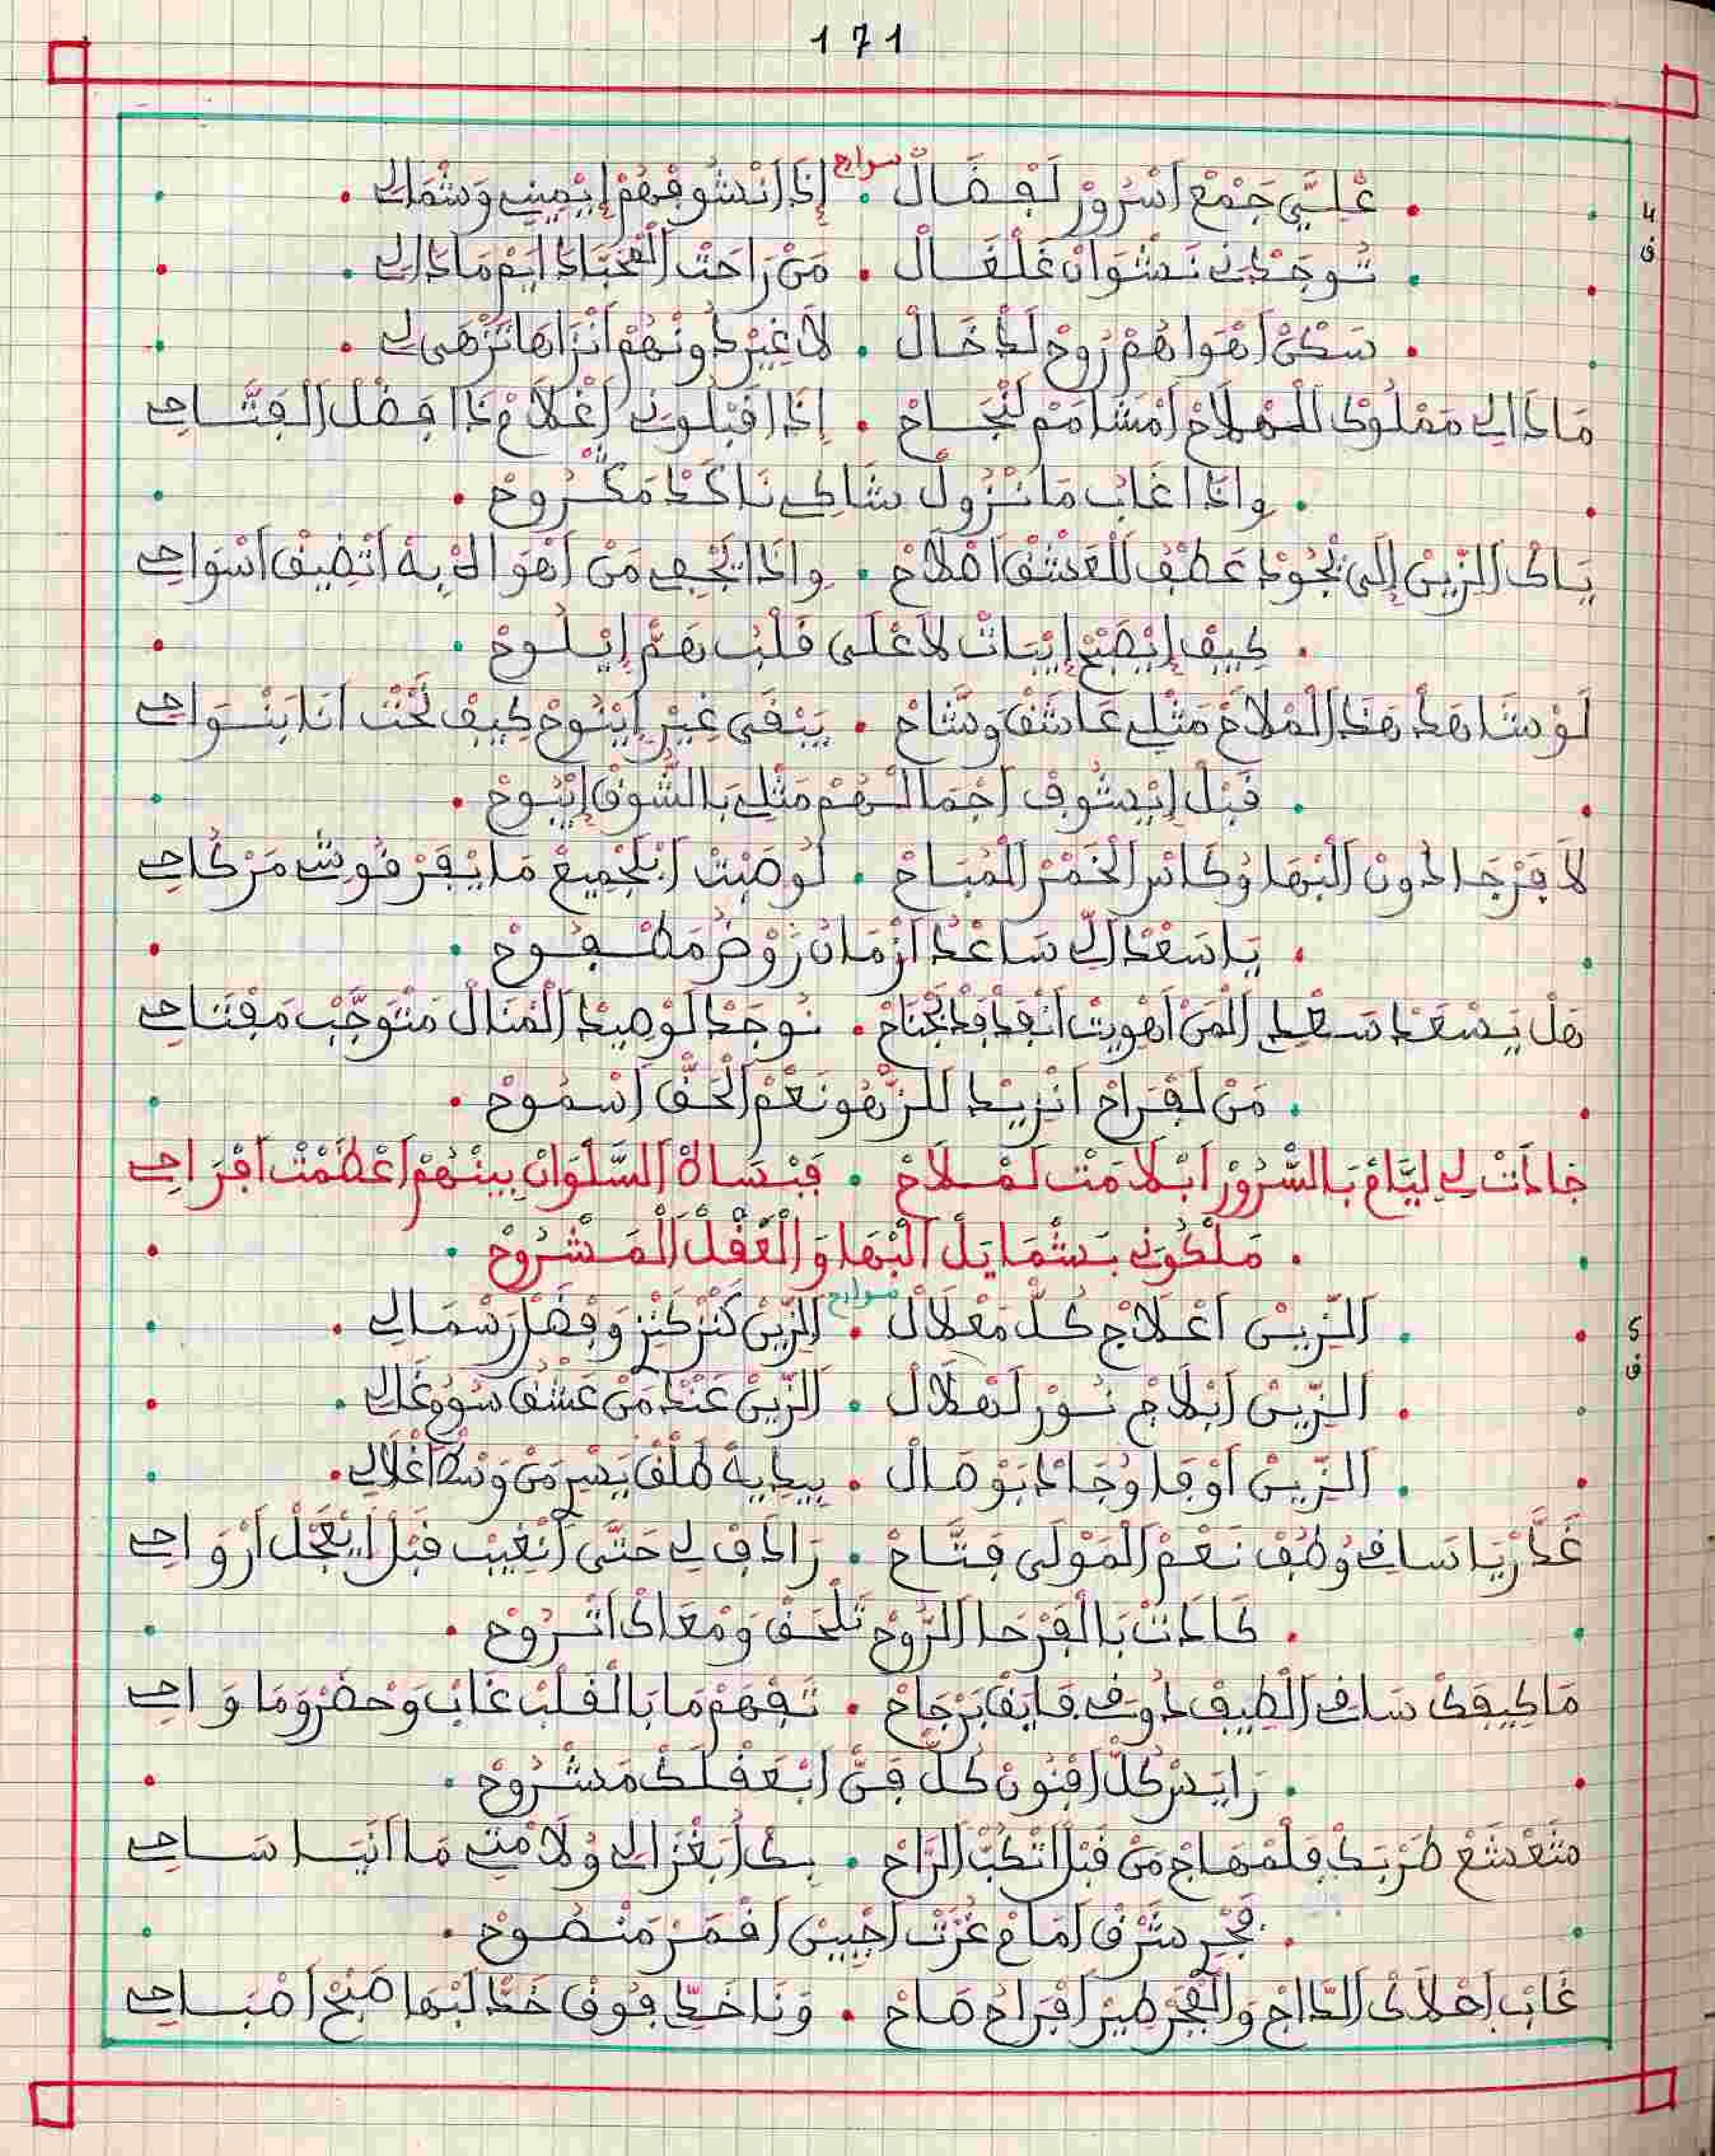 171
سوارح
عْلِيَّ جَمْعْ اَسْرُورْ لَفْضَالْ . إِذَا اَنْشُوفْهُمْ إِيْمِينِ وَشْمَالِي
4
تُوجَدْنِي نَشْوَانْ غَلْغَالْ . مَنْ رَاحَتْ اَلْمْحَبَّا دَايَمْ مَادَالِي
ف
سَكْنْ اَهْوَاهُمْ رُوحْ لَدْخَالْ . لاَ غِيرْ دُونْهُمْ اَنْزَاهَا تَزْهَى لِي
مَاذَا لِي مَمْلُوكْ لَلْمْلاَحْ اَمْشَامَمْ لَنْجَاحْ . إِذَا اقْبْلُونِي اَغْلاَمْ ذَا فَضْلْ اَلْفَتَّاحِي
وِاذَا غَابُ مَا نْزُولْ شَاكِي نَاكَدْ مَكْرُوحْ
يَاكْ اَلزِّينْ إِلَى يْجُودْ عَطْفُ لَلْعَشْقْ اَصْلاَحْ . وِاذَا يَجْفِي مَنْ اَهْوَاكْ بِهْ اَتْضِيقْ اَسْوَاحِي
كِيفْ إِيْصَبْحْ إِيْبَاتْ لاَعْلَى قَلْبُ هَمْ إِيْلُوحْ
لَوْ شَاهَدْ هَذْ اَلْمْلاَحْ مَثْلِي عَاشَقْ وَشَّاحْ . يَبْقَى غِيرْ اِيْنُوحْ كِيفْ نَحْتْ اَنَا بَنْوَاحِي
قَبْلْ إِيْشُوفْ اَجْمَالْهُمْ مَثْلِي بَالشُّوقْ إِيْبُوحْ
لاَ فَرْجَا دُونْ اَلْبْهَا وُكَاسْ اَلْخَمْرْ اَلْمُبَاحْ . لُوصَبْتْ اَبْلَجْمِيعْ مَا يْفَرْقُوشْ مَرْكَاحِي
يَا سَعْدْ اَلِّي سَاعْدُ اَزْمَانُ رَوْضُ مَطْفُوحْ
هَلْ يَسْعَدْ سَعْدِي اَلْمَنْ اَهْوِيتْ اَنْقَدْ قَدْ بَجْنَاحْ . نُوجَدْ لَوْصِيدْ اَلْمْنَالْ مَتْوَجَّبْ مَفْتَاحِي
مَنْ لَفْرَاحْ اَنْزِيدْ لَلزّْهُو نَعْمْ اَلْحَقّْ اَسْمُوحْ
جَادَتْ لِي لِيَّامْ بَالسّْرُورْ اَبْلاَمَتْ لَمْلاَحْ . فَبْسَاهْ اَلسَّلْوَانْ بِينْهُمْ اَعْظَمْتْ اَفْرَاحِي
مَلْكُونِي بَشْمَايَلْ اَلْبْهَا وَالْعَقْلْ اَلْمَشْرُوحْ
سوارح
اَلزِّينْ اَعْلاَجْ كُلّْ مَعْلاَلْ . اَلزِّينْ كَنْزْ كَنْزِي وَفْضَلْ رَسْمَالِي
5
اَلزِّينْ اَبْلاَجْ نُورْ لَهْلاَلْ . اَلزِّينْ عَنْدْ مَنْ عَشْقُ سُومُ غَالِي
ف
اَلزِّينْ اَوْفَا وُجَادْ بَوْصَالْ . بِيدِيهْ طَلْقْ يَسْرِ مَنْ وَسْطْ اَغْلاَلِي
غَدَّرْ يَا سَاقِي وُطُفْ نَعْمْ اَلْمَوْلَى فَتَّاحْ . رَادَفْ لِي حَتَّى اَنْغِيبْ قَبْلْ اَيْعَجَّلْ اَرْوَاحِي
كَادَتْ بَالْفَرْحَا اَلرُّوحْ تَلْحَقْ وَمْعَاكْ اَتْرُوحْ
مَا كِيفَكْ سَاقِي اَلْطِيفْ دُوقِي فَايَقْ بَرْجَاحْ . تَفْهَمْ مَا بَالْقَلْبْ غَابْ وَحْضَرْ وَمَا وَاحِي
رَايَسْ كُلّْ اَفْنُونْ كُلّْ فَنّْ اَبْعَقْلَكْ مَشْرُوحْ
مْشَعْشَعْ طَرْبَكْ فَلْمْهَاجْ مَنْ قَبْلْ اَتْكُبّْ اَلرَّاحْ . بِكْ اَبْغْزَالِي وُلاَمْتِي مَا اَنْيَا سَاحِي
فَجْرِ شَرْقْ اَمَامْ غُرَّتْ اَجْبِينْ اَقْمَرْ مَنْضُوحْ
غَابْ اَحْلاَكْ اَلدَّاجْ وَالْفْجَرْ طِيرْ اَفْرَاحُ صَاحْ . وَنَا خَدِّي فُوقْ خَدّْ لَبْهَا صَبْحْ اَصْبَاحِي